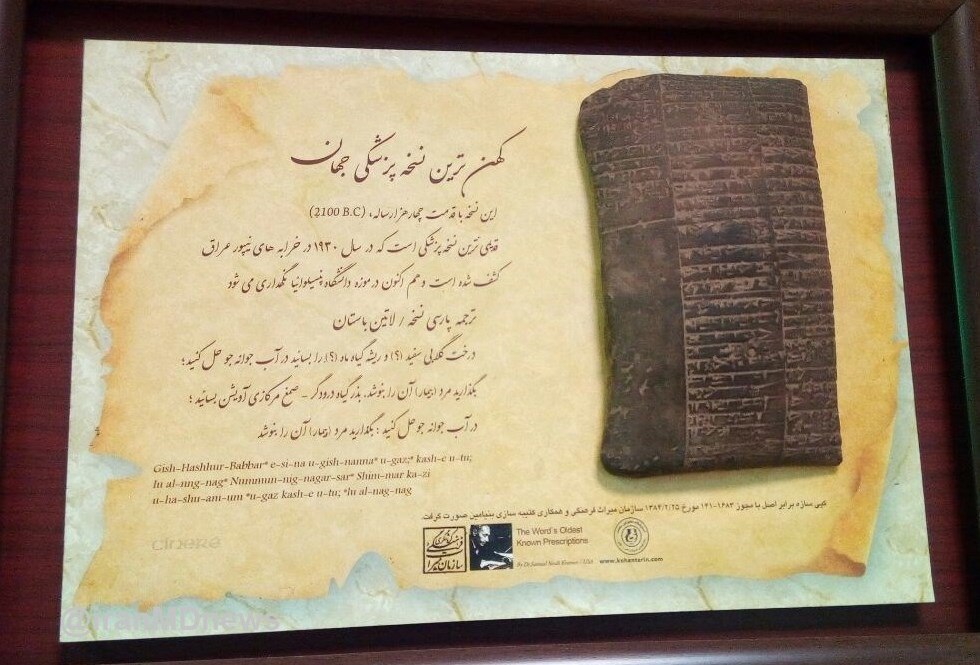 کهن ترین نسخه پزشکی جهان
این نسخه با قدمت چهار هزار ساله، (2100 B.C)
قدیمی ترین نسخه پزشکی است که در سال ۱۹۳۰ در خرابه های نیپور عراق
کشف شده است و هم اکنون در موزه دانشگاه پنسیلوانیا نگهداری می شود
ترجمه پارسی نسخه / لاتین باستان
درخت گلابی سفید (؟) و ریشه گیاه ماه (؟) را بسائید در آب جوانه جو حل کنید؛
بگذارید مرد (بیمار) آن را بنوشد، بذر گیاه درودگر - صمغ مرکازی آویشن بسائید ؛
در آب جوانه جو حل کنید ؛ بگذارید مرد (بیمار) آن را بنوشد
Gish-Hashhur-Babbar* e-si-na u-gish-nanna* u-gaz;* kash-e u-tu;
lu al-nng-nag* Numnun-nig-nagar-sar* Shim-mar ka-zi
u-ha-shu-am-um *u-gaz kash-e u-tu; *lu al-nag-nag
کپی سازه برابر اصل با مجوز ۱۶۸۳-۱۴۱ مورخ ۱۳۸۴/۲/۲۵ سازمان میراث فرهنگی و همکاری کتیبه سازی بنیامین صورت گرفت.
The Word's Oldest
Known Prescriptions
By Dr.Samuel Noah Kramer / USA
www.kohantarin.com